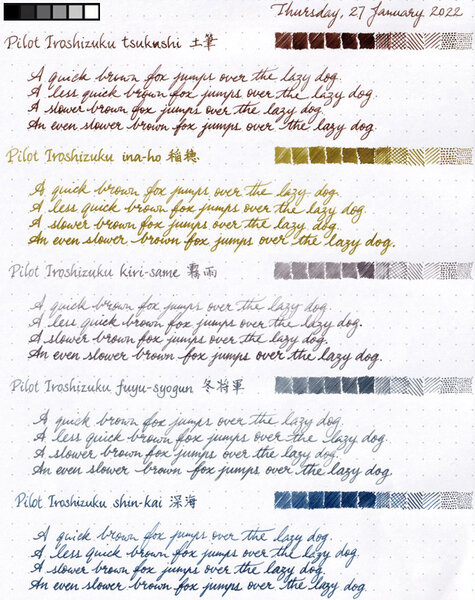 Thursday, 27 January 2022
Pilot Iroshizuku tsukushi 土筆
A quick brown fox jumps over the lazy dog.
A less quick brown fox jumps over the lazy dog.
A slower brown fox jumps over the lazy dog.
An even slower brown fox jumps over the lazy dog.
Pilot Iroshizuku ina-ho 稲穂
A quick brown fox jumps over the lazy dog.
A less quick brown fox jumps over the lazy dog.
A slower brown fox jumps over the lazy dog.
An even slower brown fox jumps over the lazy dog.
Pilot Iroshizuku kiri-same 霧雨
A quick brown fox jumps over the lazy dog.
A less quick brown fox jumps over the lazy dog.
A slower brown fox jumps over the lazy dog.
An even slower brown fox jumps over the lazy dog.
Pilot Iroshizuku fuyu-syogun 冬将軍
A quick brown fox jumps over the lazy dog.
A less quick brown fox jumps over the lazy dog.
A slower brown fox jumps over the lazy dog.
An even slower brown fox jumps over the lazy dog.
Pilot Iroshizuku shin-kai 深海
A quick brown fox jumps over the lazy dog.
A less quick brown fox jumps over the lazy dog.
A slower brown fox jumps over the lazy dog.
An even slower brown fox jumps over the lazy dog.